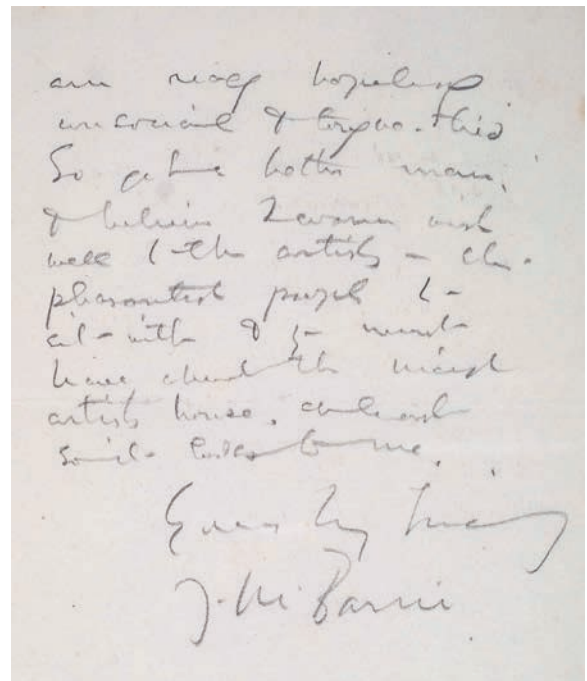 am really hopelessly
unsocial & tongue-tied
So get a better man,
& believe I warmly wish
well to the artists - the
pleasantest people to
sit with & you must
have about the nicest
artists house, at least
so it looks to me.
Yours very truly
J. M. Barrie